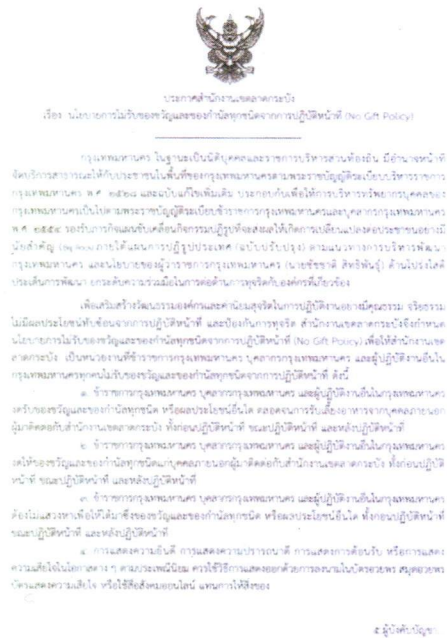 ประกาศสำนักงานเขตลาดกระบัง
เรื่อง นโยบายการไม่รับของขวัญและของกำนัลทุกชนิดจากการปฏิบัติหน้าที่ (No Gift Policy)
กรุงเทพมหานคร ในฐานะเป็นนิติบุคคลและราชการบริหารส่วนท้องถิ่น มีอำนาจหน้าที่
จัดบริการสาธารณะให้กับประชาชนในพื้นที่ของกรุงเทพมหานครตามพระราชบัญญัติระเบียบบริหารราชการ
กรุงเทพมหานคร พ.ศ. ๒๕๒๘ และฉบับแก้ไขเพิ่มเติม ประกอบกับเพื่อให้การบริหารทรัพยากรบุคคลของ
กรุงเทพมหานครเป็นไปตามพระราชบัญญัติระเบียบข้าราชการกรุงเทพมหานครและบุคลากรกรุงเทพมหานคร
พ.ศ. ๒๕๕๔ รองรับภารกิจแผนขับเคลื่อนกิจกรรมปฏิรูปที่จะส่งผลให้เกิดการเปลี่ยนแปลงต่อประชาชนอย่างมี
นัยสำคัญ (Big Rock) ภายใต้แผนการปฏิรูปประเทศ (ฉบับปรับปรุง) ตามแนวทางการบริหารพัฒนา
กรุงเทพมหานคร และนโยบายของผู้ว่าราชการกรุงเทพมหานคร (นายชัชชาติ สิทธิพันธุ์) ด้านโปร่งใสดี
ประเด็นการพัฒนา ยกระดับความร่วมมือในการต่อต้านการทุจริตกับองค์กรที่เกี่ยวข้อง
เพื่อเสริมสร้างวัฒนธรรมองค์กรและค่านิยมสุจริตในการปฏิบัติงานอย่างมีคุณธรรม จริยธรรม
ไม่มีผลประโยชน์ทับซ้อนจากการปฏิบัติหน้าที่ และป้องกันการทุจริต สำนักงานเขตลาดกระบังจึงกำหนด
นโยบายการไม่รับของขวัญและของกำนัลทุกชนิดจากการปฏิบัติหน้าที่ (No Gift Policy) เพื่อให้สำนักงานเขต
ลาดกระบัง เป็นหน่วยงานที่ข้าราชการกรุงเทพมหานคร บุคลากรกรุงเทพมหานคร และผู้ปฏิบัติงานอื่นใน
กรุงเทพมหานครทุกคนไม่รับของขวัญและของกำนัลทุกชนิดจากการปฏิบัติหน้าที่ ดังนี้
๑. ข้าราชการกรุงเทพมหานคร บุคลากรกรุงเทพมหานคร และผู้ปฏิบัติงานอื่นในกรุงเทพมหานคร
งดรับของขวัญและของกำนัลทุกชนิด หรือผลประโยชน์อื่นใด ตลอดจนการรับเลี้ยงอาหารจากบุคคลภายนอก
ผู้มาติดต่อกับสำนักงานเขตลาดกระบัง ทั้งก่อนปฏิบัติหน้าที่ ขณะปฏิบัติหน้าที่ และหลังปฏิบัติหน้าที่
๒. ข้าราชการกรุงเทพมหานคร บุคลากรกรุงเทพมหานคร และผู้ปฏิบัติงานอื่นในกรุงเทพมหานคร
งดให้ของขวัญและของกำนัลทุกชนิดแก่บุคคลภายนอกผู้มาติดต่อกับสำนักงานเขตลาดกระบัง ทั้งก่อนปฏิบัติ
หน้าที่ ขณะปฏิบัติหน้าที่ และหลังปฏิบัติหน้าที่
๓. ข้าราชการกรุงเทพมหานคร บุคลากรกรุงเทพมหานคร และผู้ปฏิบัติงานอื่นในกรุงเทพมหานคร
ต้องไม่แสวงหาเพื่อให้ได้มาซึ่งของขวัญและของกำนัลทุกชนิด หรือผลประโยชน์อื่นใด ทั้งก่อนปฏิบัติหน้าที่
ขณะปฏิบัติหน้าที่ และหลังปฏิบัติหน้าที่
๔. การแสดงความยินดี การแสดงความปรารถนาดี การแสดงการต้อนรับ หรือการแสดง
ความเสียใจในโอกาสต่าง ๆ ตามประเพณีนิยม ควรใช้วิธีการแสดงออกด้วยการลงนามในบัตรอวยพร สมุดอวยพร
บัตรแสดงความเสียใจ หรือใช้สื่อสังคมออนไลน์ แทนการให้สิ่งของ
๕.ผู้บังคับบัญชา